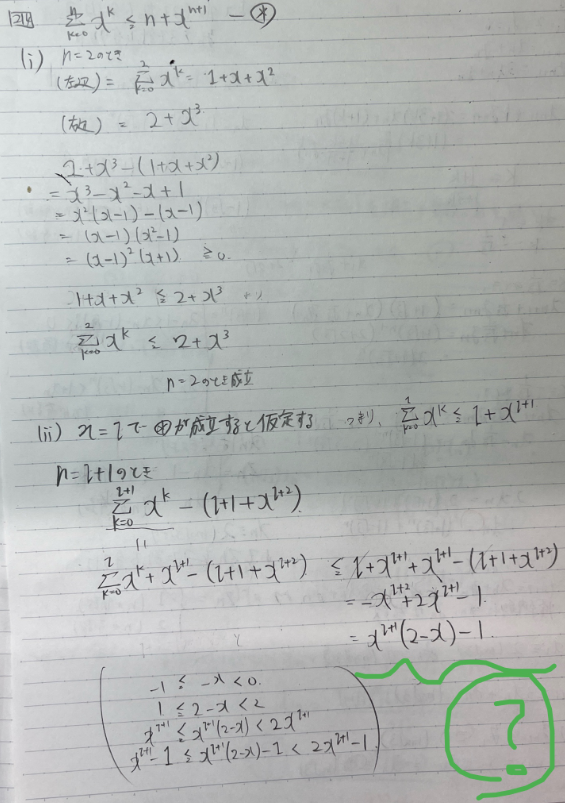 218 \sum_{k=0}^{n} x^k ≦ n + x^{n+1} —(*)
(i) n=2のとき
(左辺) = \sum_{k=0}^{2} x^k = 1+x+x^2
(右辺) = 2+x^3
2+x^3-(1+x+x^2)
= x^3-x^2-x+1
= x^2(x-1)-(x-1)
= (x-1)(x^2-1)
= (x-1)^2(x+1) ≧0.
1+x+x^2 ≦ 2+x^3 より
\sum_{k=0}^{2} x^k ≦ 2+x^3
n=2のとき成立
(ii) n=lで(*)が成立すると仮定する つまり、\sum_{k=0}^{l} x^k ≦ l+x^{l+1}
n=l+1のとき
\sum_{k=0}^{l+1} x^k - (l+1+x^{l+2})
||
\sum_{k=0}^{l} x^k + x^{l+1} - (l+1+x^{l+2}) ≦ l+x^{l+1}+x^{l+1}-(l+1+x^{l+2})
= -x^{l+2}+2x^{l+1}-1
= x^{l+1}(2-x)-1
-1 ≦ -x < 0.
1 ≦ 2-x < 2
x^{l+1} ≦ x^{l+1}(2-x) < 2x^{l+1}
x^{l+1}-1 ≦ x^{l+1}(2-x)-1 < 2x^{l+1}-1
?